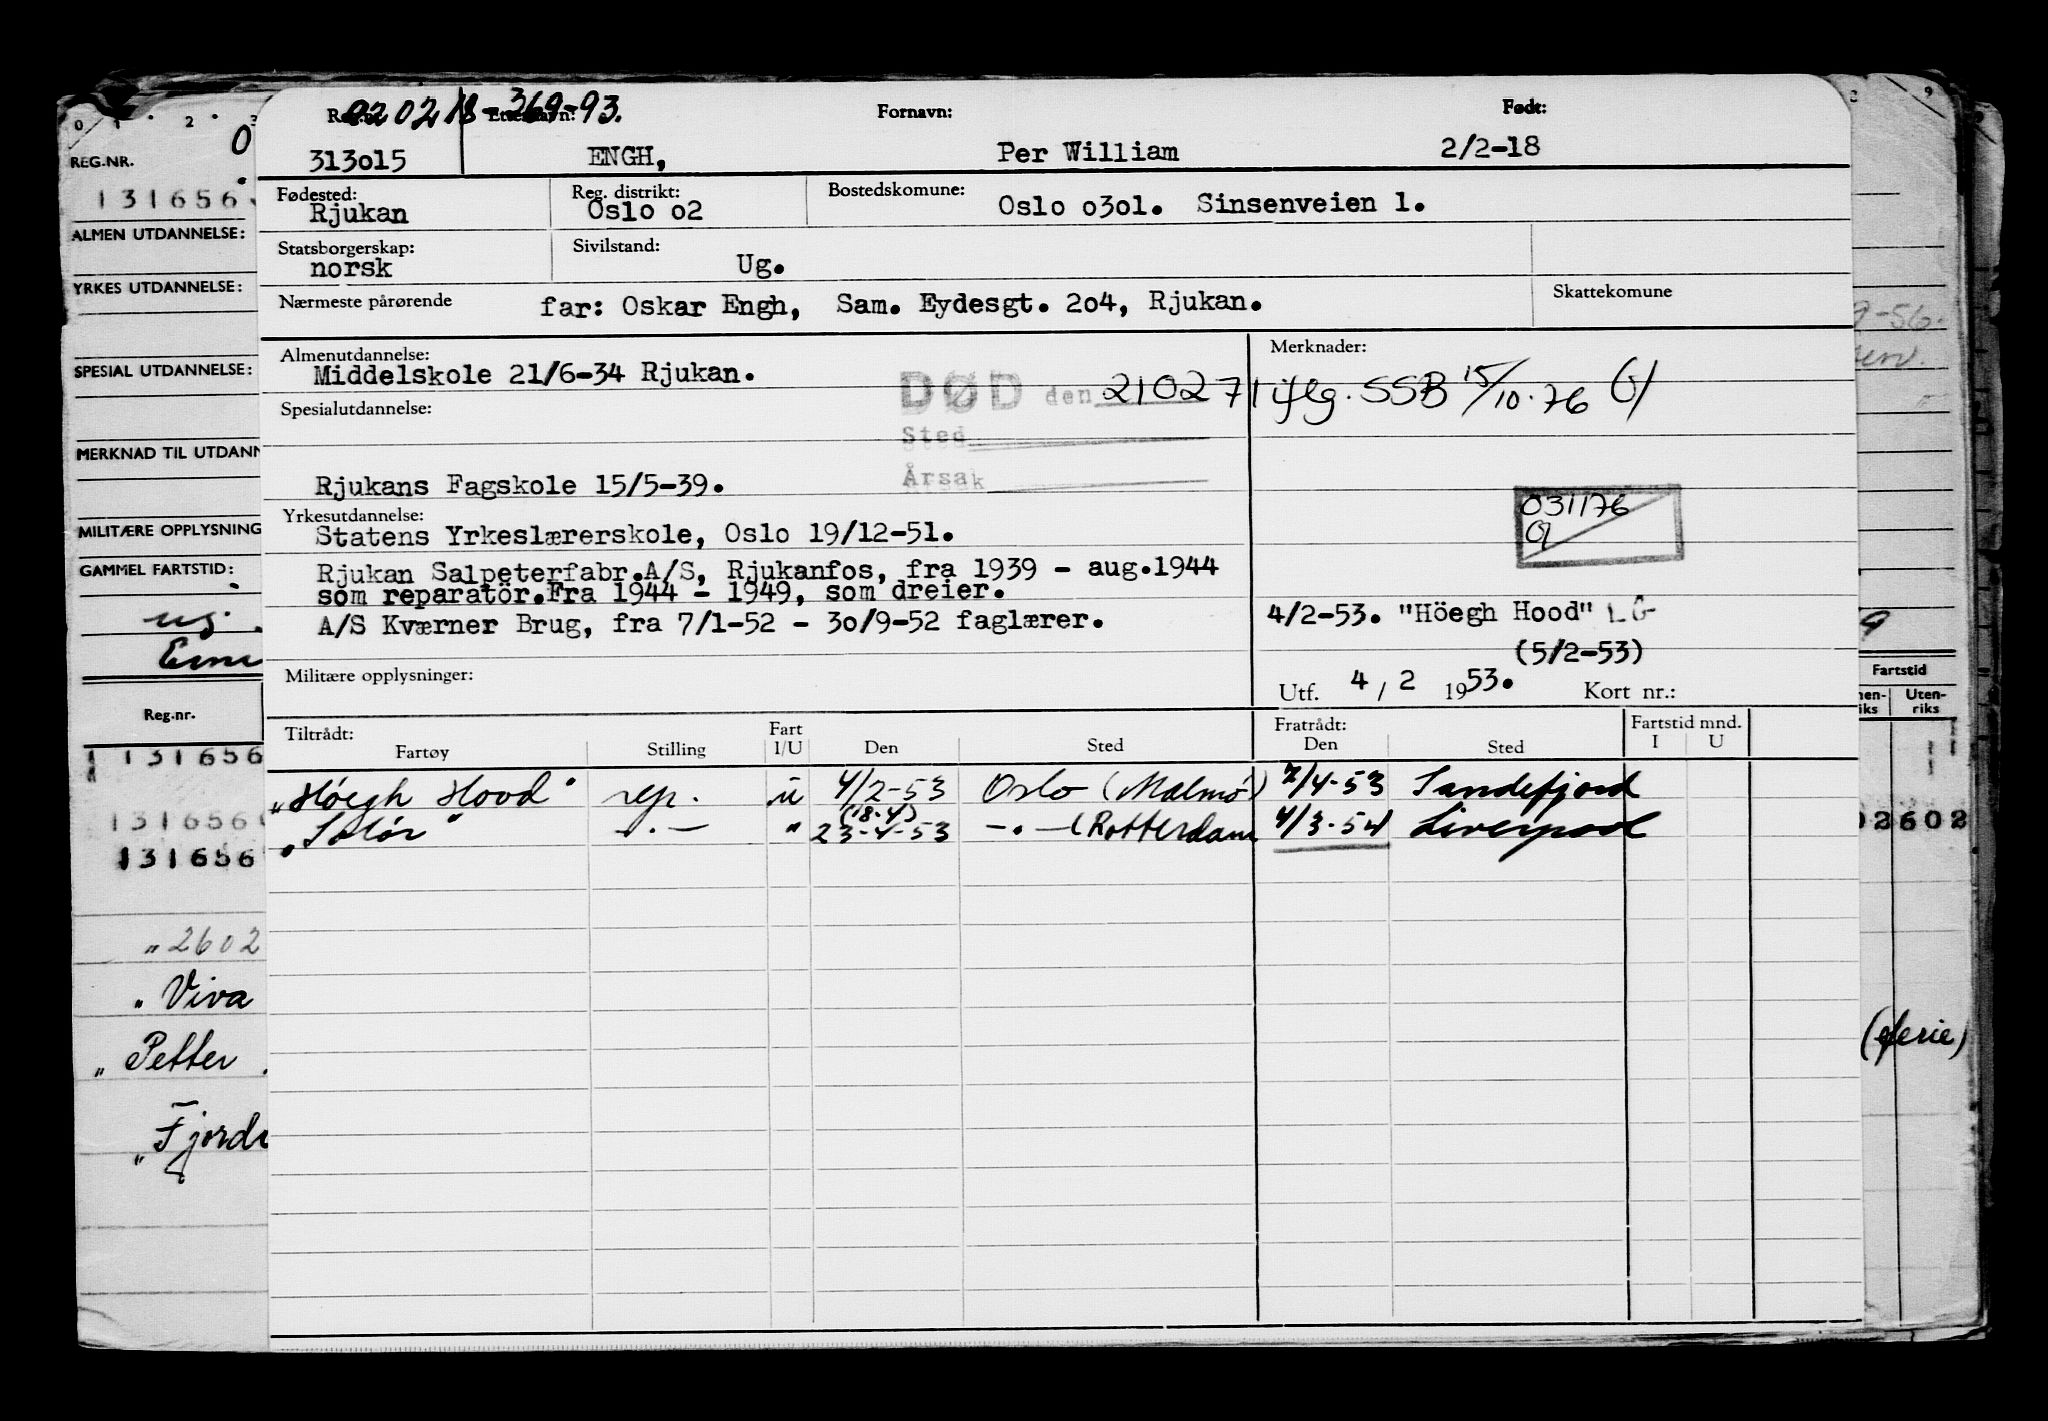 020218-36993.
Reg.nr. Etternavn: Fornavn: Født:
313o15 ENGH, Per William 2/2-18
Fødested: Reg. distrikt: Bostedskomune:
Rjukan Oslo o2 Oslo o3o1. Sinsenveien 1.
Statsborgerskap: Sivilstand:
norsk Ug.
Nærmeste pårørende far: Oskar Engh, Sam. Eydesgt. 2o4, Rjukan. Skattekomune
Almenutdannelse: Merknader:
Middelskole 21/6-34 Rjukan.
DØD den 210271 iflg. SSB 15/10.76
Spesialutdannelse:
Sted
Årsak
Rjukans Fagskole 15/5-39.
031176
Yrkesutdannelse:
Statens Yrkeslærerskole, Oslo 19/12-51.
Rjukan Salpeterfabr.A/S, Rjukanfos, fra 1939 - aug.1944
som reparatör.Fra 1944 - 1949, som dreier.
A/S Kværner Brug, fra 7/1-52 - 3o/9-52 faglærer.
4/2-53. "Höegh Hood" LG
(5/2-53)
Militære opplysninger:
Utf. 4 / 2 1953. Kort nr.:
Tiltrådt: Fratrådt: Fartstid mnd.
Fartøy Stilling Fart I/U Den Sted Den Sted I U
"Höegh Hood" rep. u 4/2-53 Oslo (Malmø) 7/4-53 Sandefjord
(18.4)
"Solør" -.- " 23-4-53 -.- (Rotterdam 4/3-54 Liverpool
0 1 2 3
REG.NR.
131656
ALMEN UTDANNELSE:
YRKES UTDANNELSE:
SPESIAL UTDANNELSE:
MERKNAD TIL UTDANN
MILITÆRE OPPLYSNING
GAMMEL FARTSTID:
ug.
Reg.nr.
131656
131656
131656
"2602
"Viva
"Petter
"Fjord
9
-56.
Fartstid
nen-riks Uten-riks
02602
(ferie)